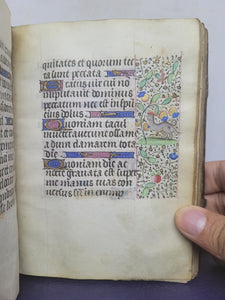 quitates et quorum tec
ta sunt peccata
Beatus vir cui no
imputavit dominus
peccatum nec est in spu
eius dolus
Quoniam tacui
inveteraverunt ossa me
a dum clamarem tota
die
Quoniam die ac
nocte gravata est super
me manus tua con
in erumpna